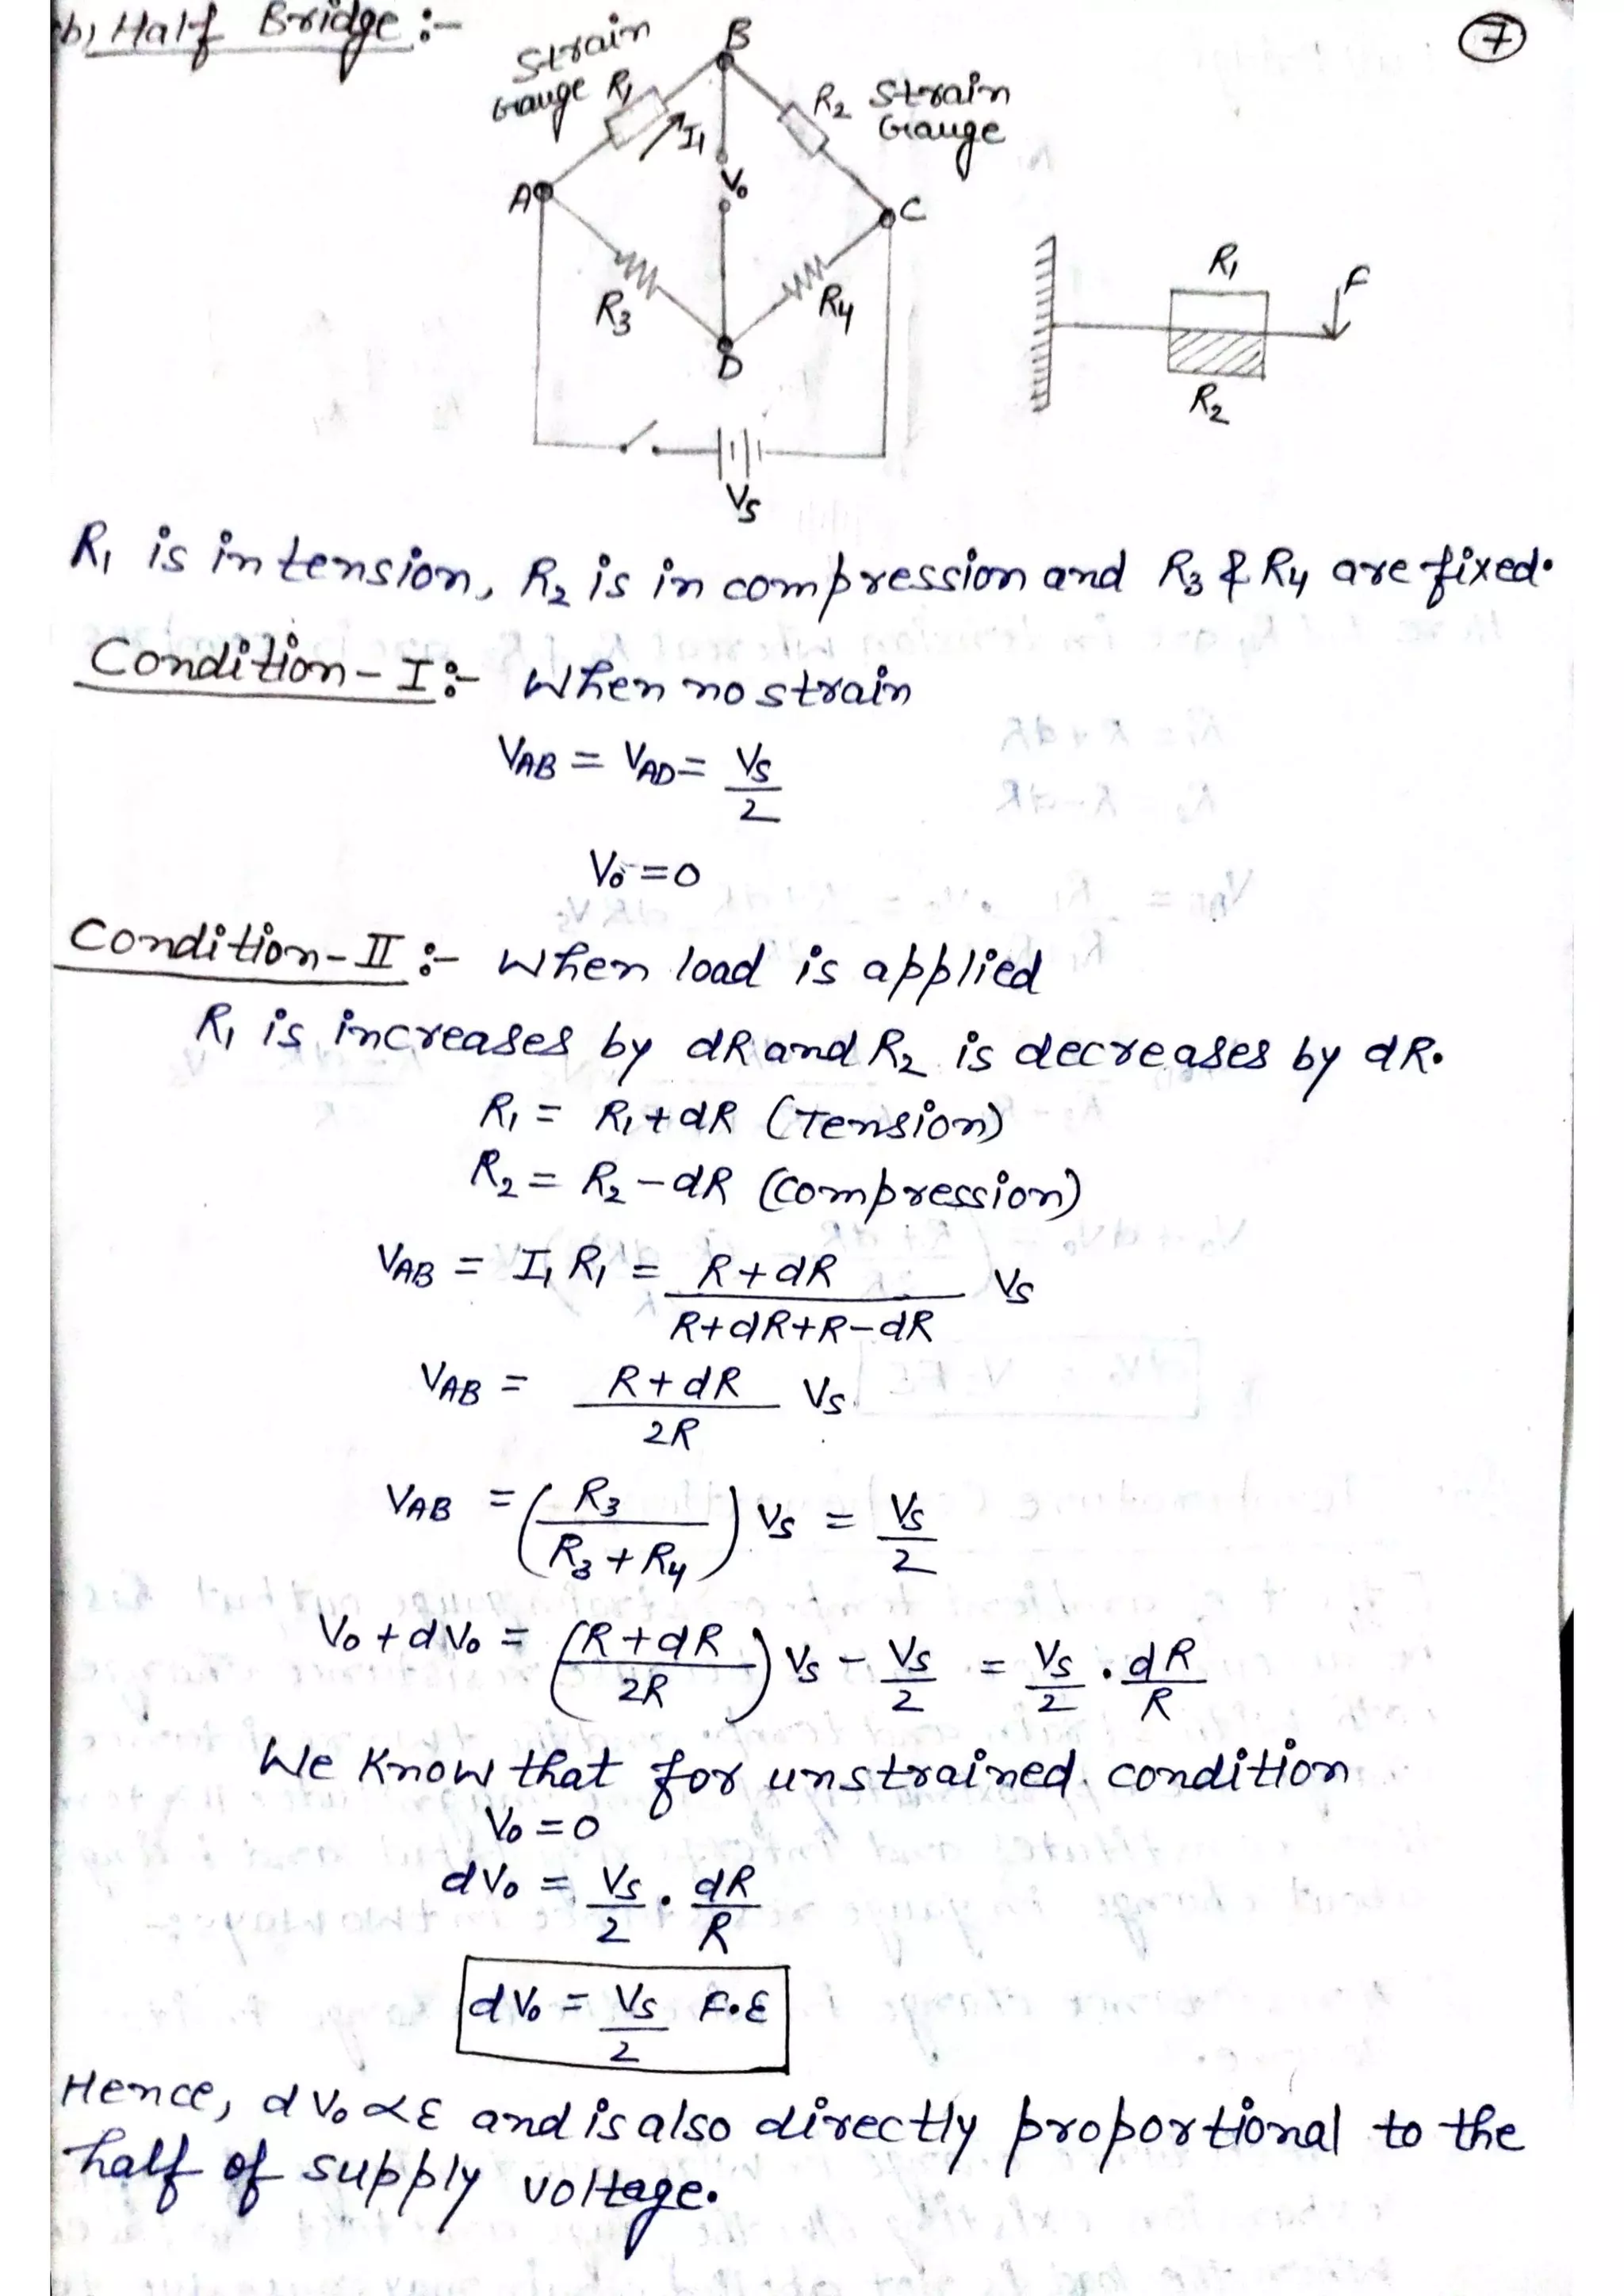 b) Half Bridge :-
7
Strain
Gauge R1
B
R2 Strain
Gauge
I1
V0
A
C
R3
R4
D
Vs
R1
F
R2
R1 is in tension, R2 is in compression and R3 & R4 are fixed.
Condition - I :- When no strain
VAB = VAD = Vs/2
V0 = 0
Condition - II :- When load is applied
R1 is increases by dR and R2 is decreases by dR.
R1 = R1 + dR (Tension)
R2 = R2 - dR (Compression)
VAB = I1 R1 = (R + dR)/(R + dR + R - dR) Vs
VAB = (R + dR)/2R Vs
VAB = (R3/(R3 + R4)) Vs = Vs/2
V0 + dV0 = ((R + dR)/2R) Vs - Vs/2 = Vs/2 . dR/R
We know that for unstrained condition
V0 = 0
dV0 = Vs/2 . dR/R
dV0 = Vs/2 F.ε
Hence, dV0 ∝ ε and is also directly proportional to the
half of supply voltage.